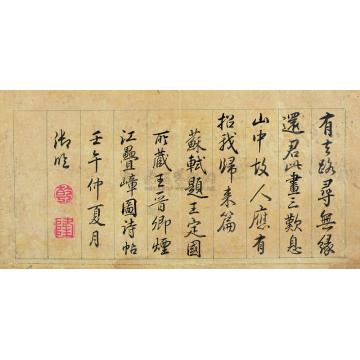 有去路尋無緣
還君此畫三歎息
山中故人應有
招我歸來篇
蘇軾題王定國
所藏王晉卿煙
江疊嶂圖詩帖
壬午仲夏月
張